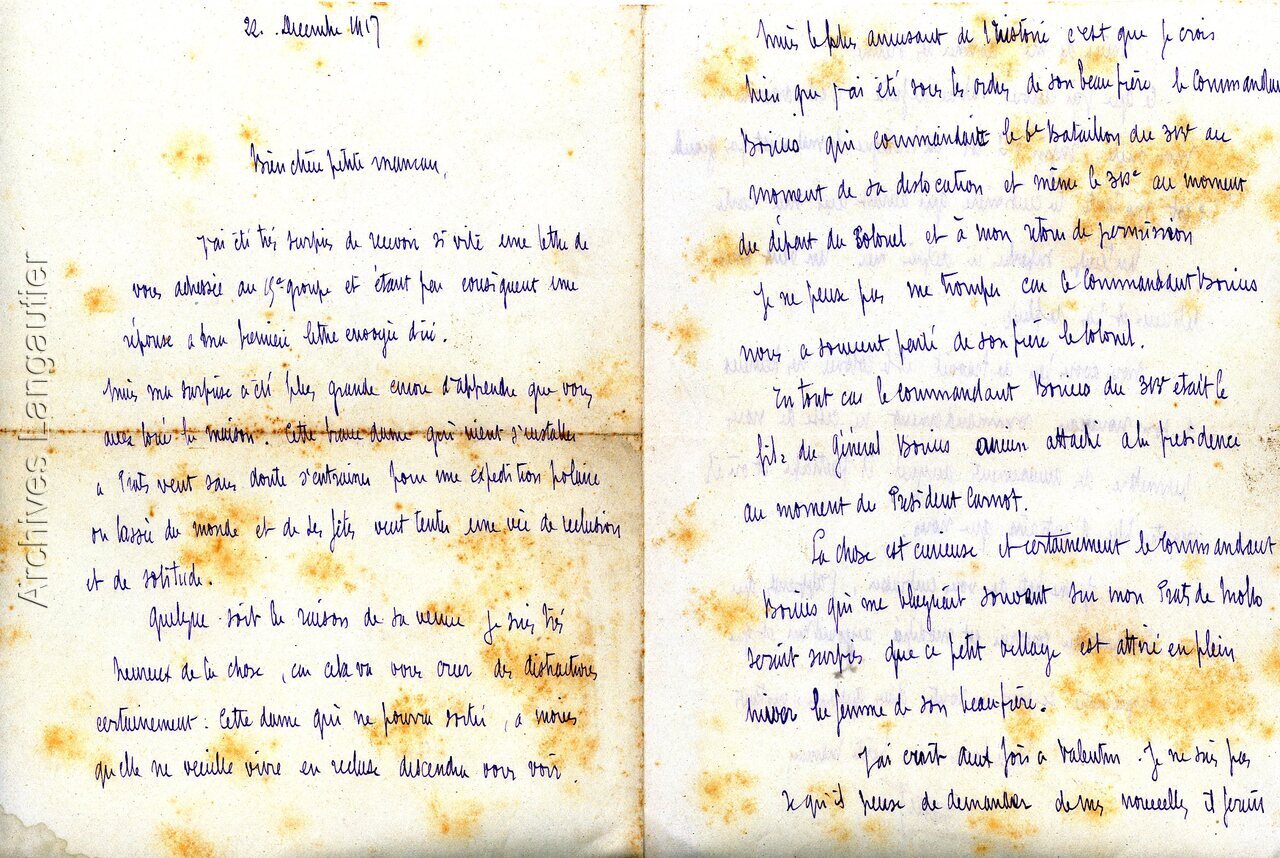 22. Decembre 1917
Bien chère petite maman,
J'ai été très surpris de recevoir si vite une lettre de
vous adressée au groupe et étant par consiquent une
réponse a ma première lettre envoyée d'ici.
Mais ma surprise a été plus grande encore d'apprendre que vous
avez loué la maison. Cette brave dame qui vient s'installer
a Prats veut sans doute s'entrainer pour une expedition polaire
ou lassée du monde et de ses fêtes veut tenter une vie de reclusion
et de solitude.
Quelque soit la raison de sa venue je suis très
heureux de la chose, car cela va vous créer des distractions
certainement. Cette dame qui ne pourra sortir, a moins
qu'elle ne veuille vivre en recluse descendra vous voir.
Mais le plus amusant de l'histoire c'est que je crois
bien que j'ai été sous les ordres de son beau frère le Commandant
qui commandait le 6e Bataillon du au
moment de sa dislocation et même le au moment
du départ du Colonel et à mon retour de permission
Je ne peux pas me tromper car le Commandant
nous a souvent parlé de son frère le Colonel.
En tout cas le Commandant du était le
fils du Général ancien attaché a la présidence
au moment du President Carnot.
La chose est curieuse et certainement le Commandant
qui me blaguait souvent sur mon Prats de Mollo
serait surpris que ce petit village est attiré en plein
hiver la femme de son beau frère.
J'ai écrit deux fois a Valentin. Je ne sais pas
ce qu'il pense de demander de mes nouvelles il ferait
Archives Langautier